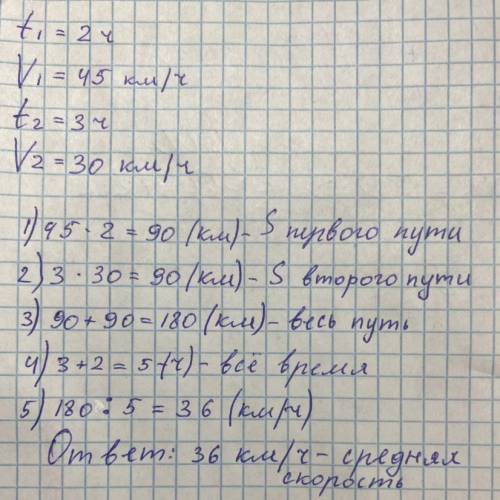 t₁ = 2 ч
V₁ = 45 км/ч
t₂ = 3 ч
V₂ = 30 км/ч
1) 45 · 2 = 90 (км) - S первого пути
2) 3 · 30 = 90 (км) - S второго пути
3) 90 + 90 = 180 (км) - весь путь
4) 3 + 2 = 5 (ч) - всё время
5) 180 : 5 = 36 (км/ч)
Ответ: 36 км/ч - средняя
скорость